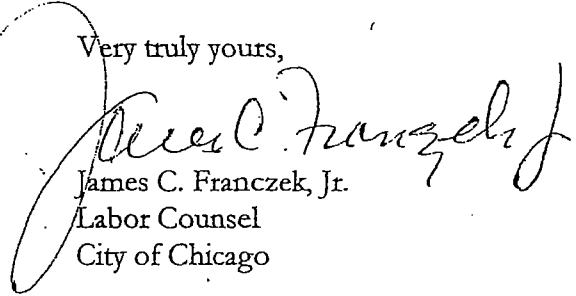 Very truly yours,
James C. Franczek Jr
James C. Franczek, Jr.
Labor Counsel
City of Chicago